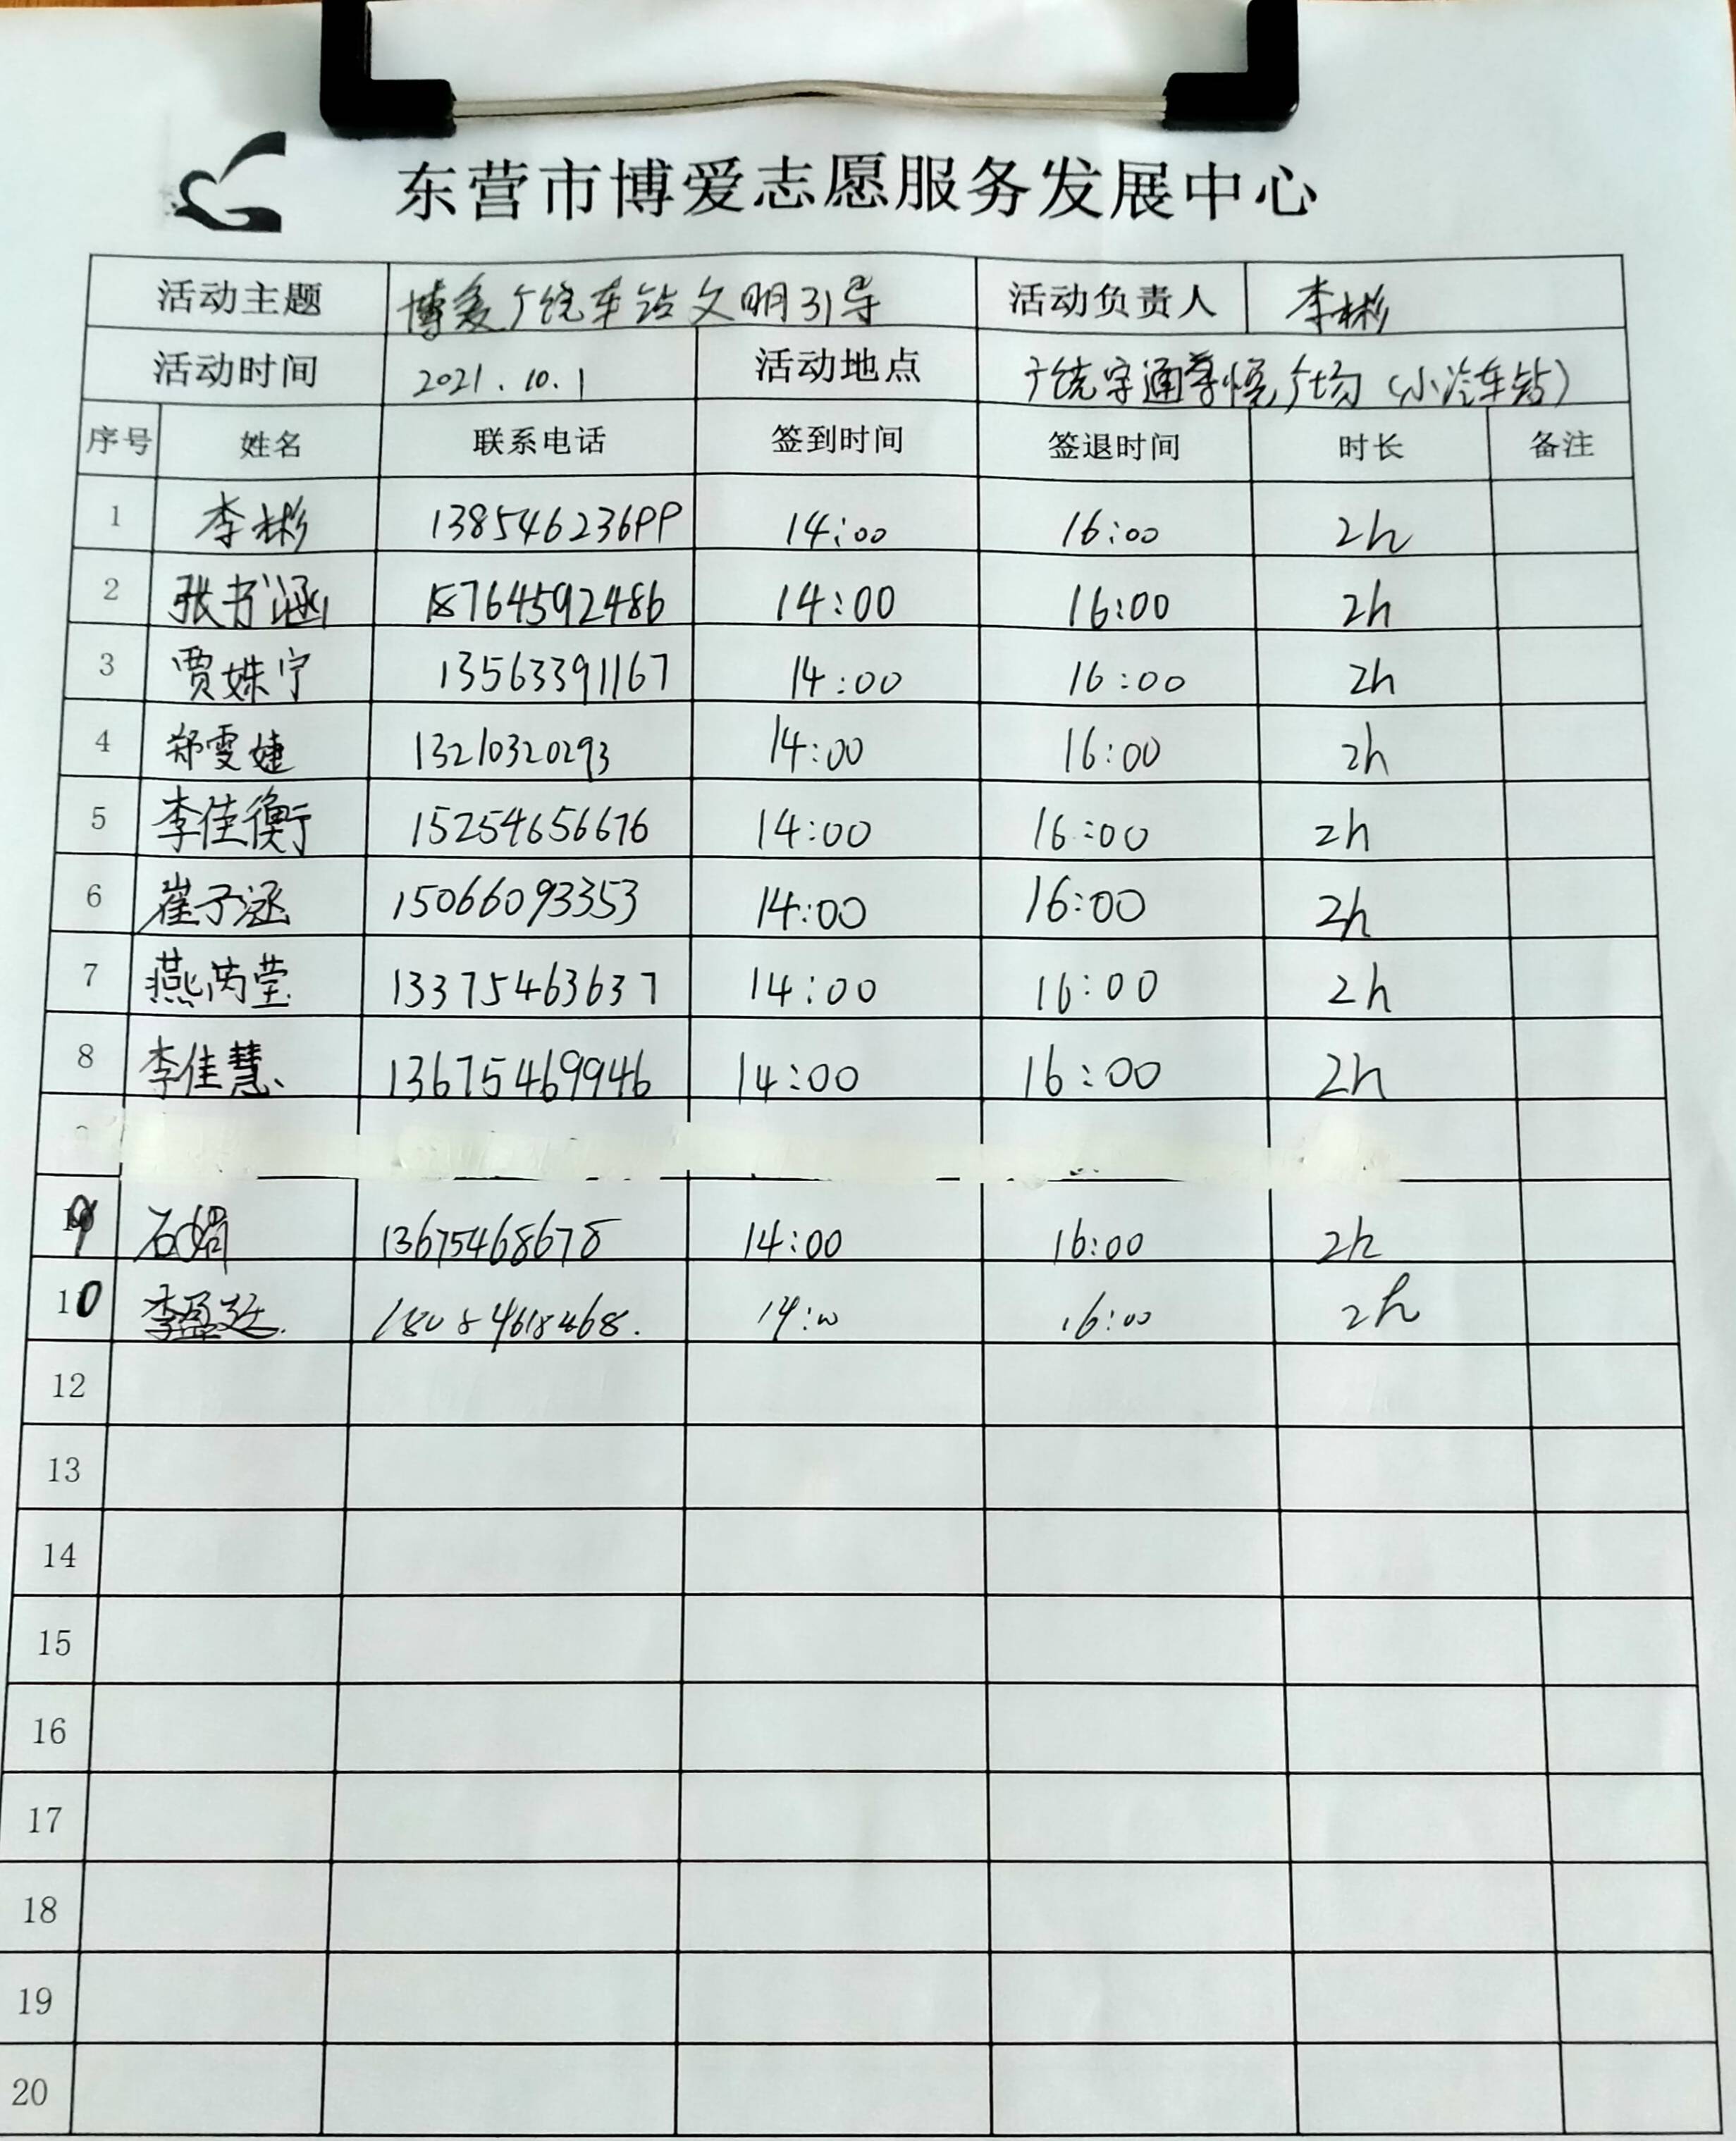 东营市博爱志愿服务发展中心
活动主题 博爱广饶车站文明引导 活动负责人 李彬
活动时间 2021.10.1 活动地点 广饶宇通 广场(小冷车站)
序号 姓名 联系电话 签到时间 签退时间 时长 备注
1 李彬 13854623699 14:00 16:00 2h
2 张书涵 18764592486 14:00 16:00 2h
3 贾姝宁 13563391167 14:00 16:00 2h
4 郑雯婕 13210320293 14:00 16:00 2h
5 李佳衡 15254656676 14:00 16:00 2h
6 崔子涵 15066093353 14:00 16:00 2h
7 燕芮莹 13375463637 14:00 16:00 2h
8 李佳慧 13675469946 14:00 16:00 2h
9 石娟 13675468678 14:00 16:00 2h
10 李盈廷 14:00 16:00 2h
12
13
14
15
16
17
18
19
20